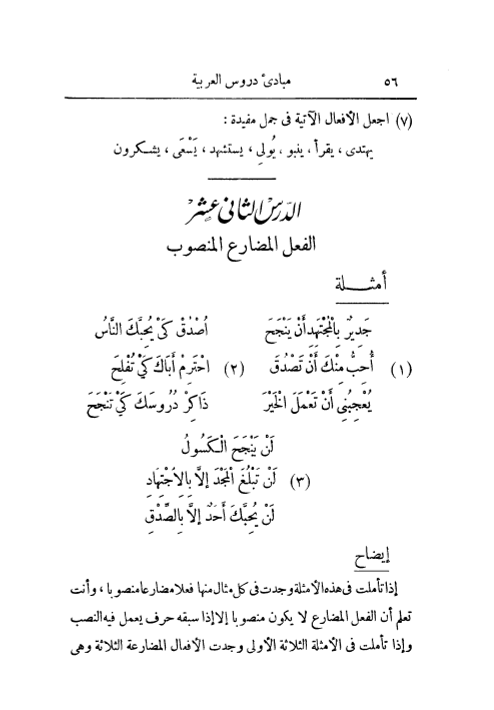 ٥٦ مبادئ دروس العربية
(٧) اجعل الأفعال الآتية فى جمل مفيدة :
يهتدى ، يقرأ ، ينبو ، يُولِى ، يستشهد ، يَسْعَى ، يشكرون
الدرس الثانى عشر
الفعل المضارع المنصوب
أمثلة
جَدِيرٌ بِالْمُجْتَهِدِ أَنْ يَنْجَحَ اُصْدُقْ كَىْ يُحِبَّكَ النَّاسُ
(١) أُحِبُّ مِنْكَ أَنْ تَصْدُقَ (٢) احْتَرِمْ أَبَاكَ كَىْ تُفْلِحَ
يُعْجِبُنِى أَنْ تَعْمَلَ الْخَيْرَ ذَاكِرْ دُرُوسَكَ كَىْ تَنْجَحَ
لَنْ يَنْجَحَ الْكَسُولُ
(٣) لَنْ تَبْلُغَ الْمَجْدَ إلاَّ بِالاجْتِهَادِ
لَنْ يُحِبَّكَ أَحَدٌ إلاَّ بِالصِّدْقِ
إيضاح
إذا تأملت فى هذه الأمثلة وجدت فى كل مثال منها فعلا مضارعا منصوبا ، وأنت
تعلم أن الفعل المضارع لا يكون منصوبا إلا إذا سبقه حرف يعمل فيه النصب
وإذا تأملت فى الأمثلة الثلاثة الأولى وجدت الأفعال المضارعة الثلاثة وهى